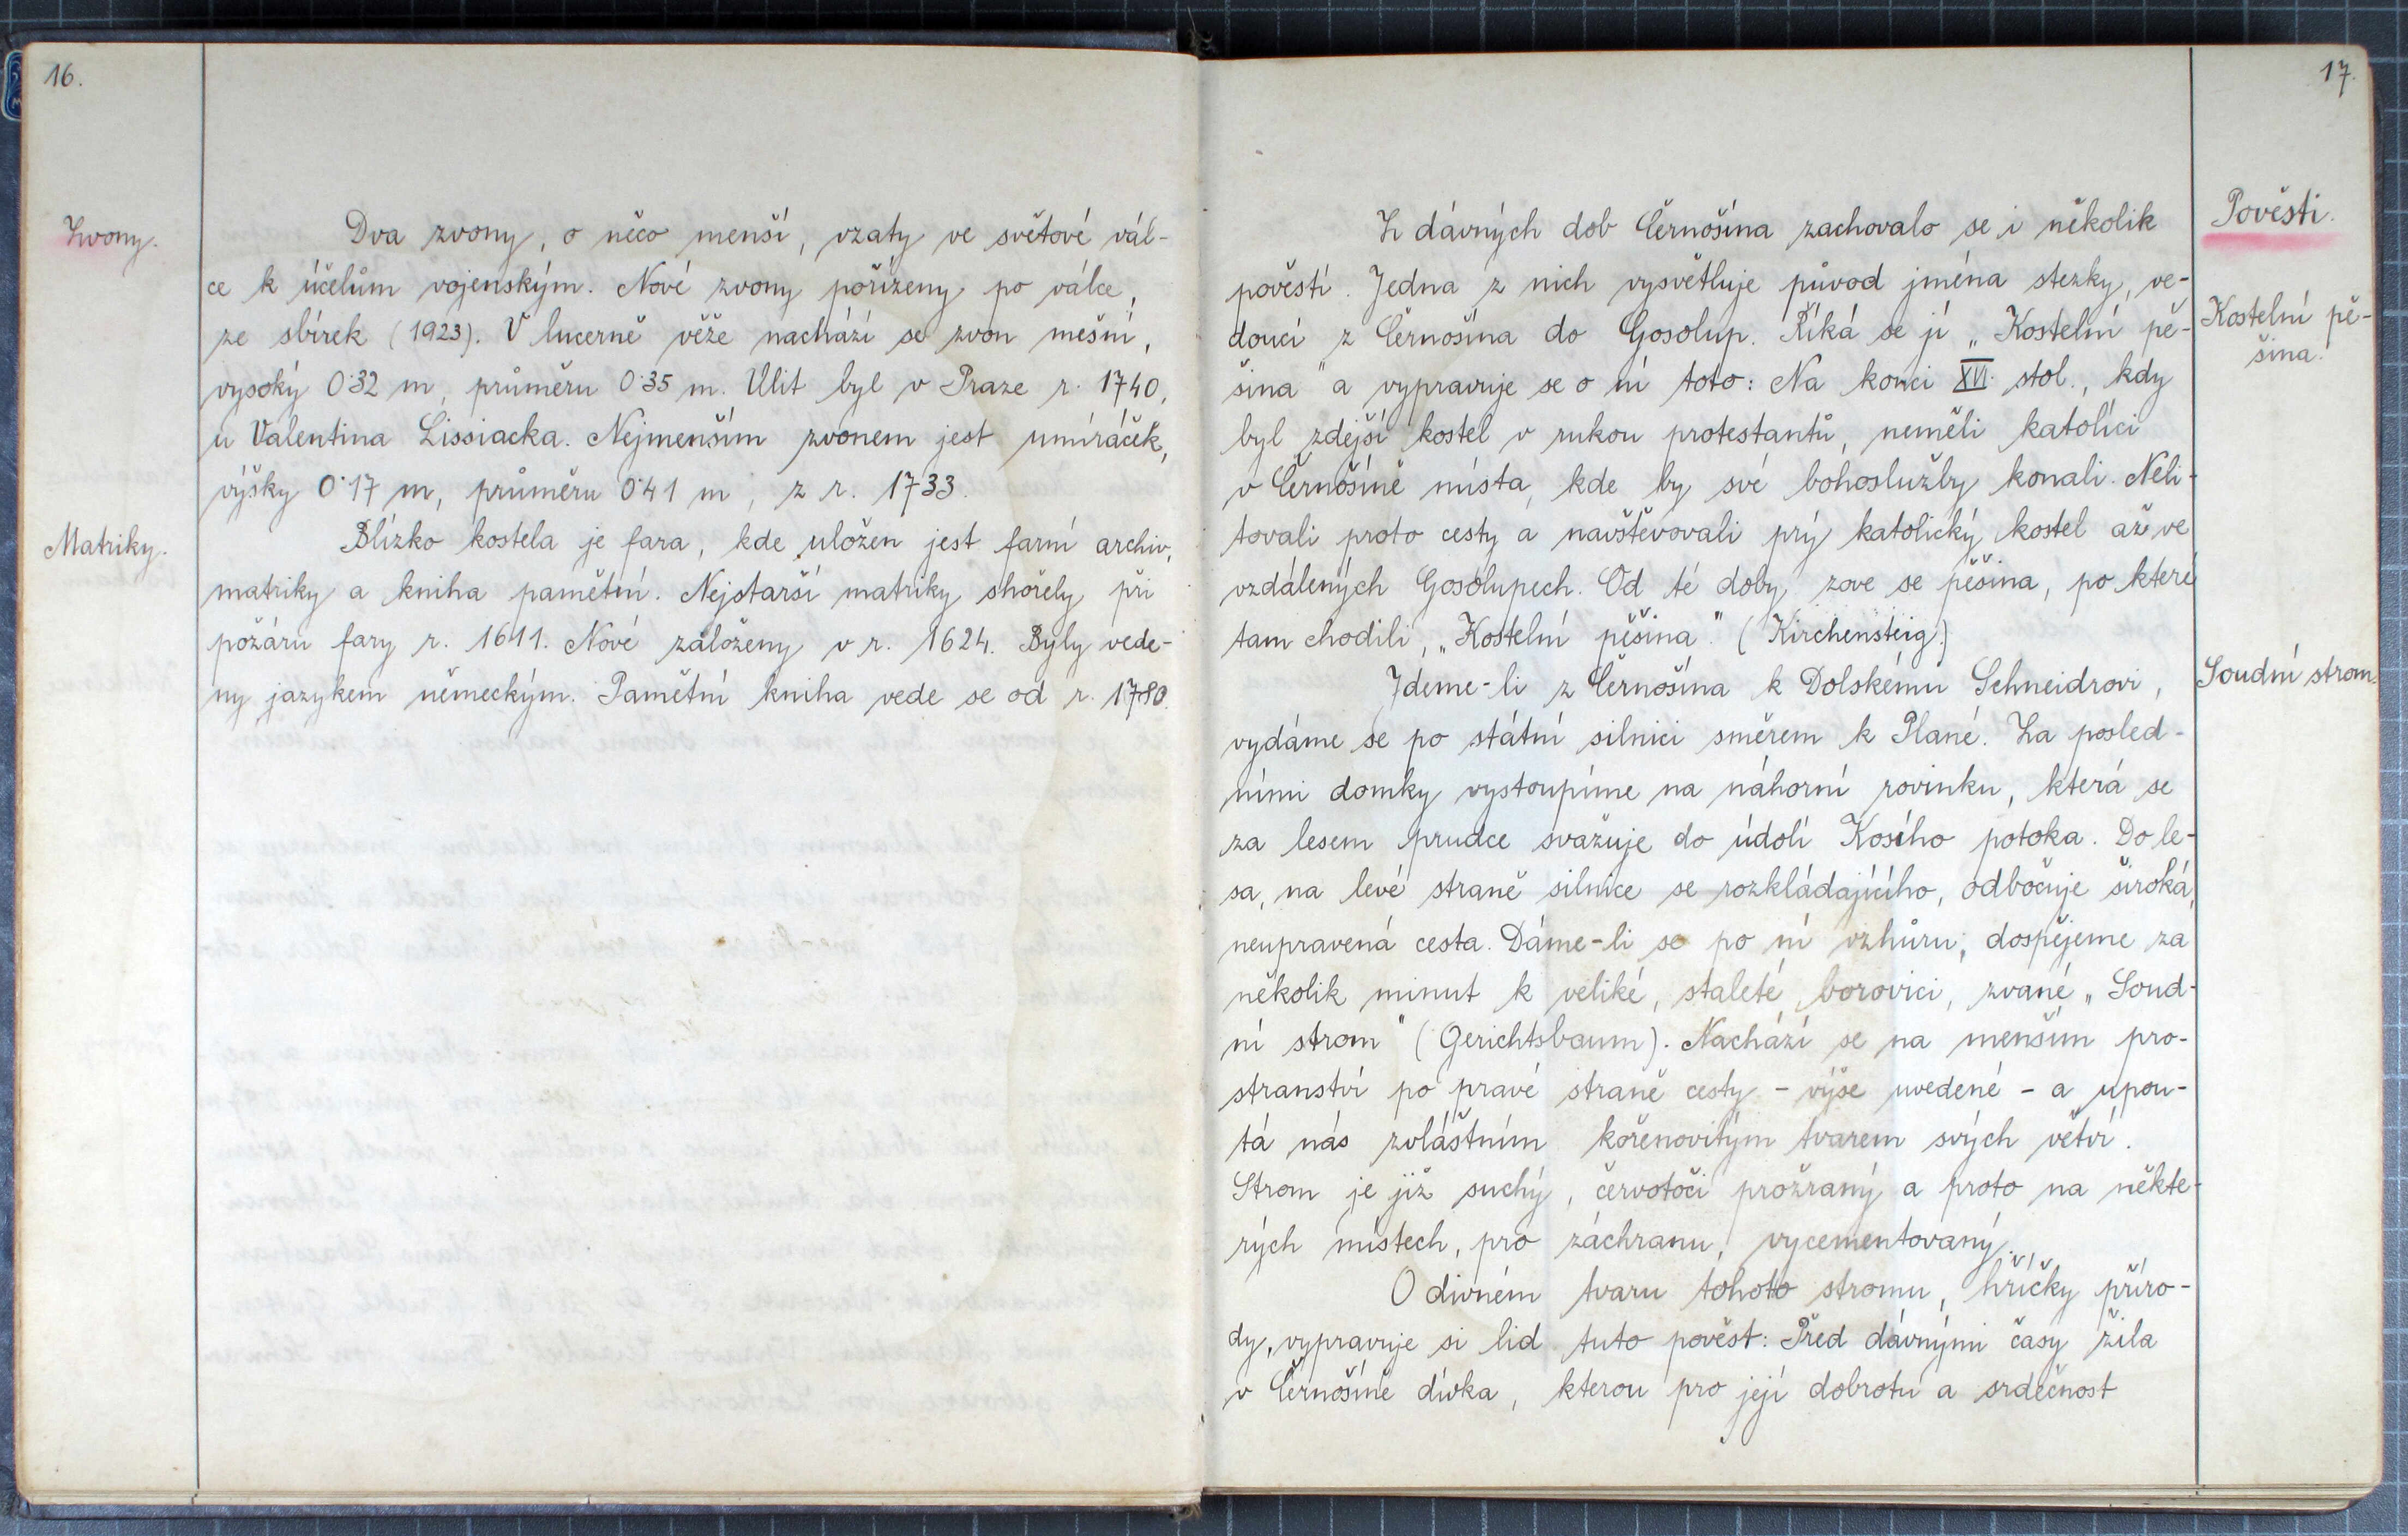 16.
Zvony.
Dva zvony, o něco menší, vzaty ve světové vál-
ce k účelům vojenským. Nové zvony pořízeny po válce,
ze sbírek (1923). V lucerně věže nachází se zvon mešní,
vysoký 0·32 m, průměru 0·35 m. Ulit byl v Praze r. 1740,
u Valentina Lissiacka. Nejmenším zvonem jest umíráček,
výšky 0·17 m, průměru 0·41 m, z r. 1733.
Matriky.
Blízko kostela je fara, kde uložen jest farní archiv,
matriky a kniha pamětní. Nejstarší matriky shořely při
požáru fary r. 1611. Nové založeny v r. 1624. Byly vede-
ny jazykem německým. Pamětní kniha vede se od r. 1780.
17.
Pověsti.
Z dávných dob Černošína zachovalo se i několik
pověstí. Jedna z nich vysvětluje původ jména stezky, ve-
doucí z Černošína do Gosolup. Říká se jí „Kostelní pě-
šina" a vypravuje se o ní toto: Na konci XVI. stol., kdy
byl zdejší kostel v rukou protestantů, neměli katolíci
v Černošíně místa, kde by své bohoslužby konali. Neli-
tovali proto cesty a navštěvovali prý katolický kostel až ve
vzdálených Gosolupech. Od té doby zove se pěšina, po které
tam chodili, „Kostelní pěšina." (Kirchensteig.)
Kostelní pě-
šina.
Jdeme-li z Černošína k Dolskému Schneidrovi,
vydáme se po státní silnici směrem k Plané. Za posled-
ními domky vystoupíme na náhorní rovinku, která se
za lesem prudce svažuje do údolí Kosího potoka. Do le-
sa, na levé straně silnice se rozkládajícího, odbočuje široká,
neupravená cesta. Dáme-li se po ní vzhůru, dospějeme za
několik minut k veliké, staleté borovici, zvané „Soud-
ní strom" (Gerichtsbaum). Nachází se na menším pro-
stranství po pravé straně cesty - výše uvedené - a upou-
tá nás zvláštním kořenovitým tvarem svých větví.
Strom je již suchý, červotoči prožraný a proto na někte-
rých místech, pro záchranu, vycementovaný.
Soudní strom.
O divném tvaru tohoto stromu, hříčky příro-
dy, vypravuje si lid tuto pověst: Před dávnými časy žila
v Černošíně dívka, kterou pro její dobrotu a srdečnost